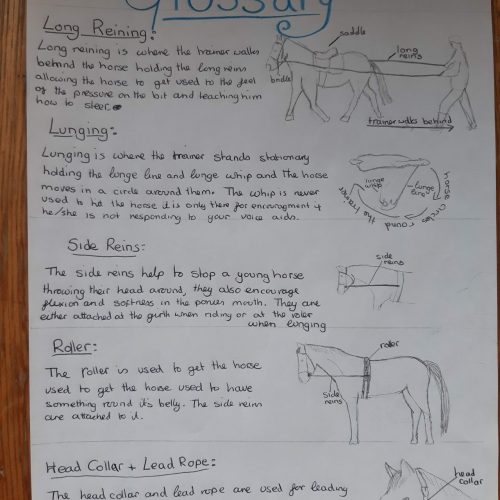 Glossary
Long Reining:
Long reining is where the trainer walks
behind the horse holding the long reins
allowing the horse to get used to the feel
of the pressure on the bit and teaching him
how to steer.
saddle
long
reins
bridle
trainer walks behind
Lunging:
Lunging is where the trainer stands stationary
holding the lunge line and lunge whip and the horse
moves in a circle around them. The whip is never
used to hit the horse it is only there for encouragment if
he/she is not responding to your voice aids.
lunge
whip
lunge
line
horse circles round the trainer
Side Reins:
The side reins help to stop a young horse
throwing their head around, they also encourage
flexion and softness in the ponies mouth. They are
either attached at the girth when riding or at the roller
when lunging
side
reins
Roller:
The roller is used to get the horse
used to get the horse used to have
something round it's belly. The side reins
are attached to it.
roller
side
reins
Head Collar + Lead Rope:
The head collar and lead rope are used for leading
head
collar